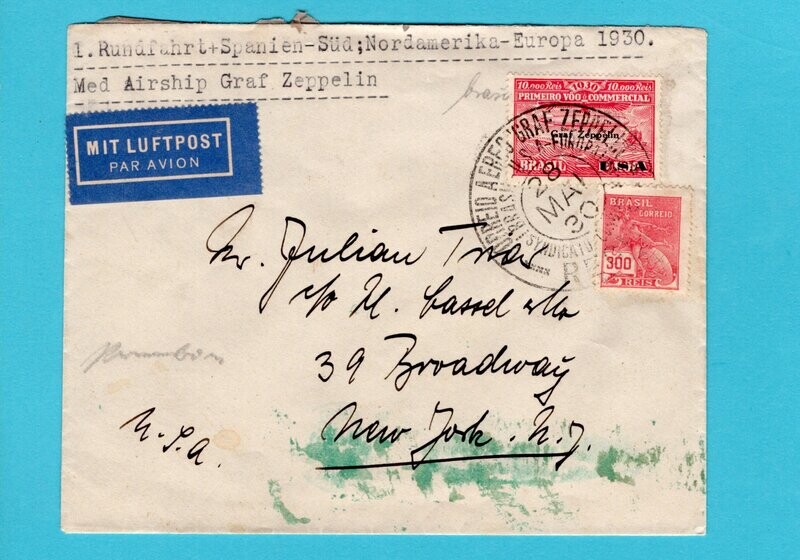 1. Rundfahrt+Spanien-Süd;Nordamerika-Europa 1930.
Med Airship Graf Zeppelin
MIT LUFTPOST
PAR AVION
10.000 Reis 1930 10.000 Reis
PRIMEIRO VOO COMMERCIAL
Graf Zeppelin
BRASIL
U.S.A.
CORREIO AEREO GRAF ZEPPELIN
28
MAI
30
SYNDICATO
BRASIL
CORREIO
300
REIS
Mr. Julian
c/o H. Cassel & Co
39 Broadway
New York. N.Y.
U.S.A.
Pernambuco